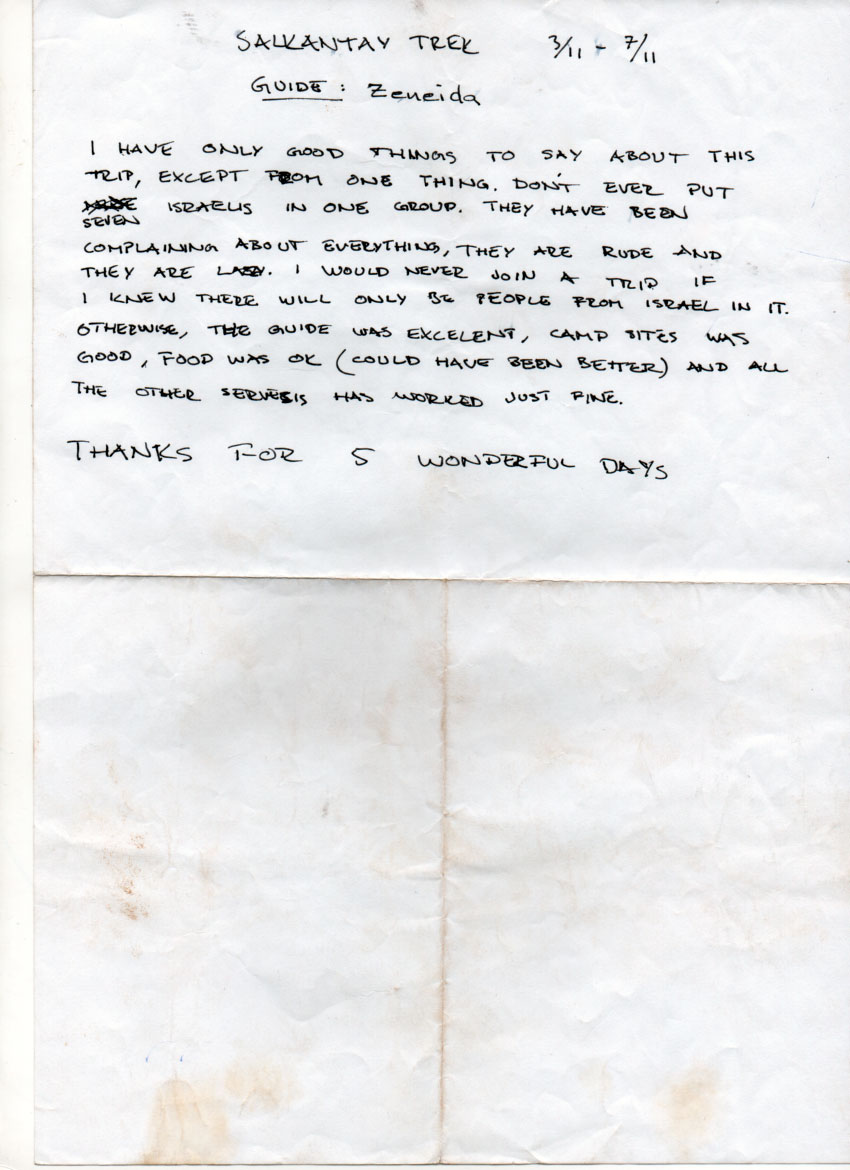 SALKANTAY TREK 3/11 - 7/11
GUIDE: Zeneida
I HAVE ONLY GOOD THINGS TO SAY ABOUT THIS
TRIP, EXCEPT FROM ONE THING. DON'T EVER PUT
SEVEN ISRAELIS IN ONE GROUP. THEY HAVE BEEN
COMPLAINING ABOUT EVERYTHING, THEY ARE RUDE AND
THEY ARE LAZY. I WOULD NEVER JOIN A TRIP IF
I KNEW THERE WILL ONLY BE PEOPLE FROM ISRAEL IN IT.
OTHERWISE, THE GUIDE WAS EXCELENT, CAMP SITES WAS
GOOD, FOOD WAS OK (COULD HAVE BEEN BETTER) AND ALL
THE OTHER SERVESIS HAS WORKED JUST FINE.
THANKS FOR 5 WONDERFUL DAYS